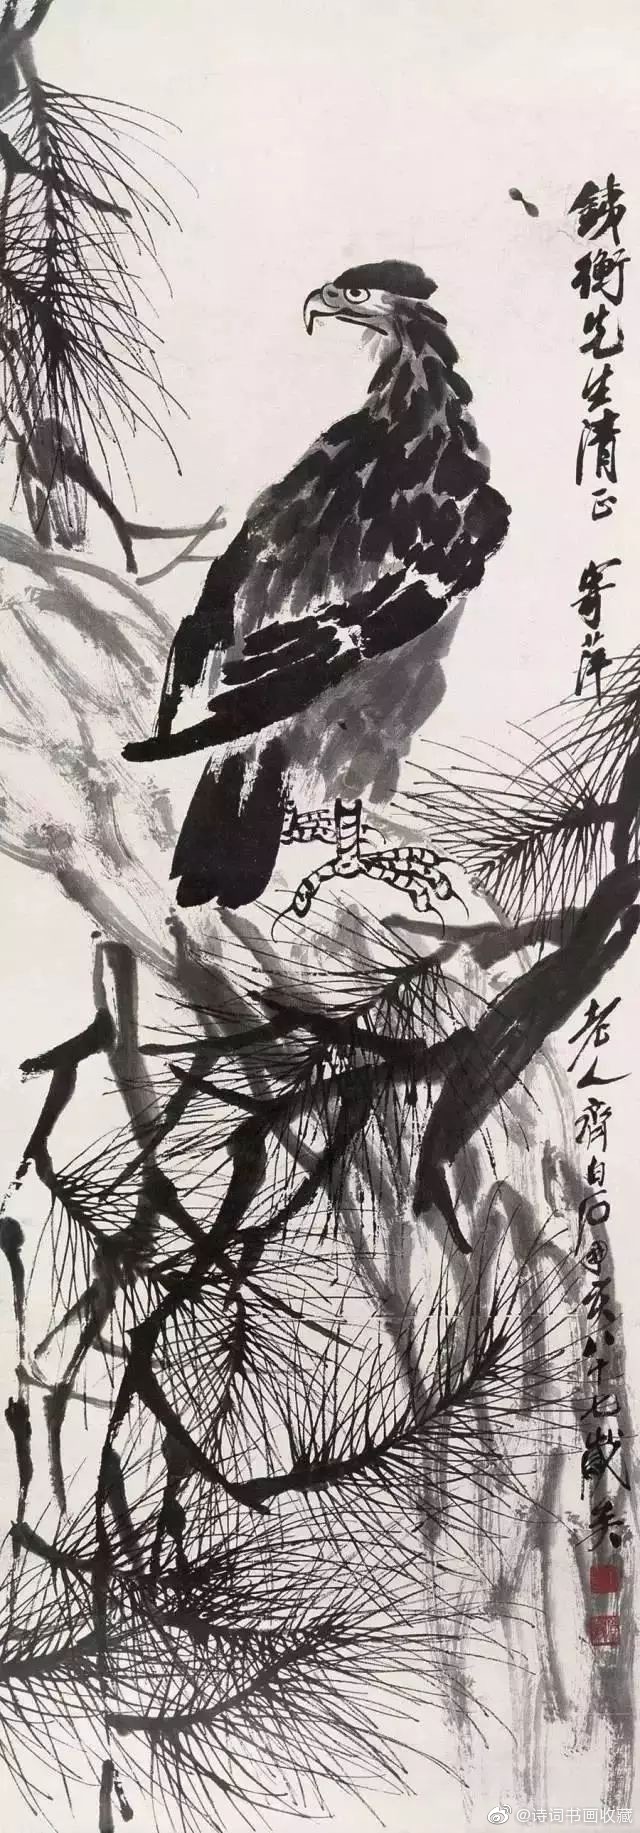 鐵衡先生清正 寄萍
老人齊白石丁亥八十七歲矣
@诗词书画收藏